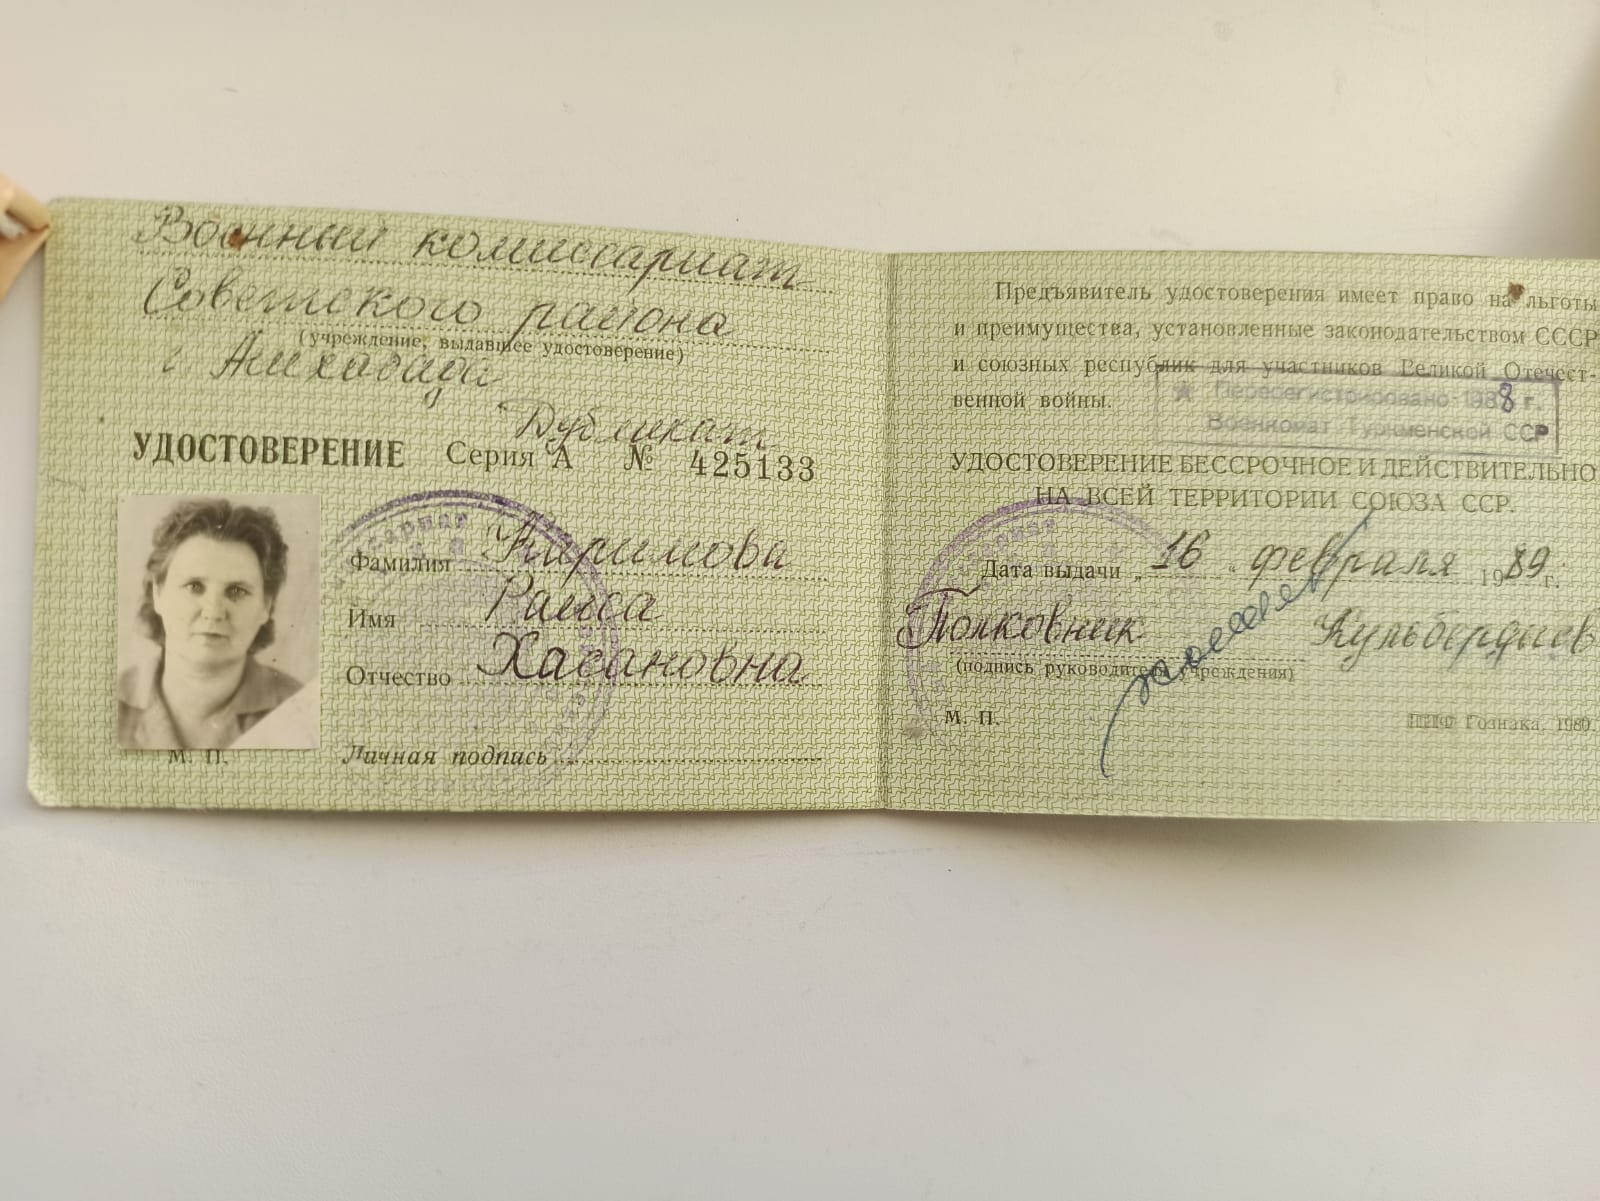 Военный комиссариат
Советского района
(учреждение, выдавшее удостоверение)
г. Ашхабада
Дубликат
УДОСТОВЕРЕНИЕ Серия А № 425133
Фамилия Каримова
Имя Раиса
Отчество Хасановна
М. П.
Личная подпись
Предъявитель удостоверения имеет право на льготы
и преимущества, установленные законодательством СССР
и союзных республик для участников Великой Отечест-
венной войны.
Перерегистрировано 1988 г.
Военкомат Туркменской ССР
УДОСТОВЕРЕНИЕ БЕССРОЧНОЕ И ДЕЙСТВИТЕЛЬНО
НА ВСЕЙ ТЕРРИТОРИИ СОЮЗА ССР.
Дата выдачи „16“ февраля 1989 г.
Полковник Кульбердыев
(подпись руководителя учреждения)
М. П.
Гознака. 1980.